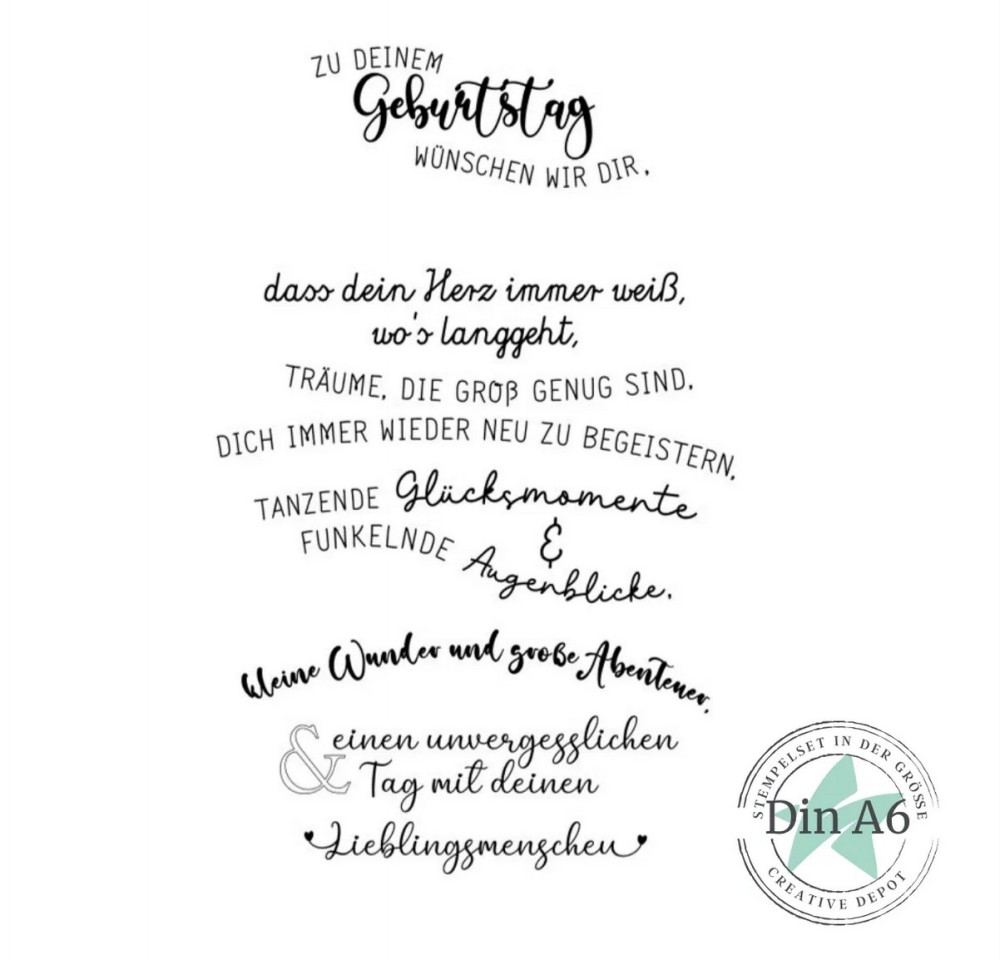 ZU DEINEM
Geburtstag
WÜNSCHEN WIR DIR,
dass dein Herz immer weiß,
wo's langgeht,
TRÄUME, DIE GROß GENUG SIND,
DICH IMMER WIEDER NEU ZU BEGEISTERN,
TANZENDE Glücksmomente
&
FUNKELNDE Augenblicke.
kleine Wunder und große Abenteuer,
& einen unvergesslichen
Tag mit deinen
Lieblingsmenschen
STEMPELSET IN DER GRÖSSE
Din A6
CREATIVE DEPOT